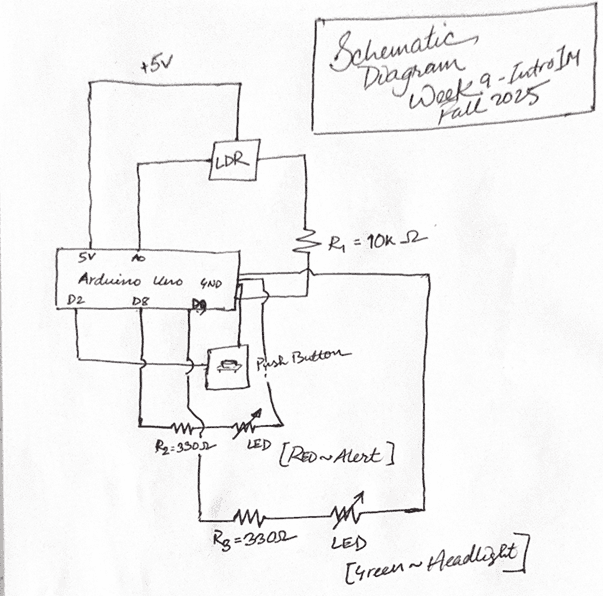 Schematic
Diagram
Week 9 - Intro IM
Fall 2025
+5V
LDR
R1 = 10K Ω
5V A0
Arduino Uno GND
D2 D8 D9
Push Button
R2=330Ω LED
[RED~Alert]
R3=330Ω LED
[Green~Headlight]